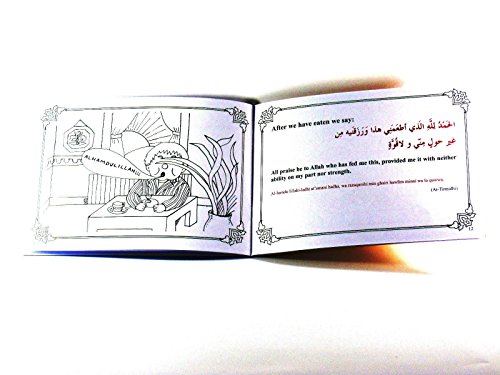 ALHAMDULILLAH!!
After we have eaten we say:
الحَمْدُ لِلَّهِ الَّذِي أَطْعَمَنِي هذا وَرَزَقَنِيهِ مِن
غيرِ حولٍ مِنّي و لاقُوَّةٍ
All praise be to Allah who has fed me this, provided me it with neither
ability on my part nor strength.
Al-hamdu lillahi-ladhi at'amani hadha, wa razaqanihi min ghairi hawlim minni wa la quwwa.
(At-Tirmidhi)
12